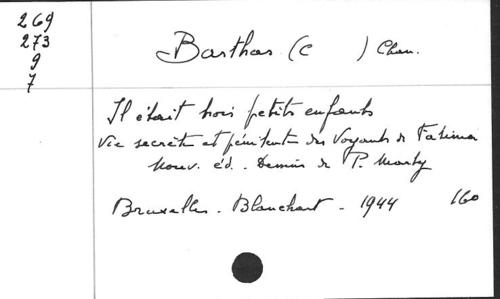 269
273
9
7
Barthas (C ) Chan.
Il était trois petits enfants
Vie secrète et pénitente des Voyants de Fatima
Nouv. éd. Dessins de P. Marty
Bruxelles - Blanchart - 1944 160